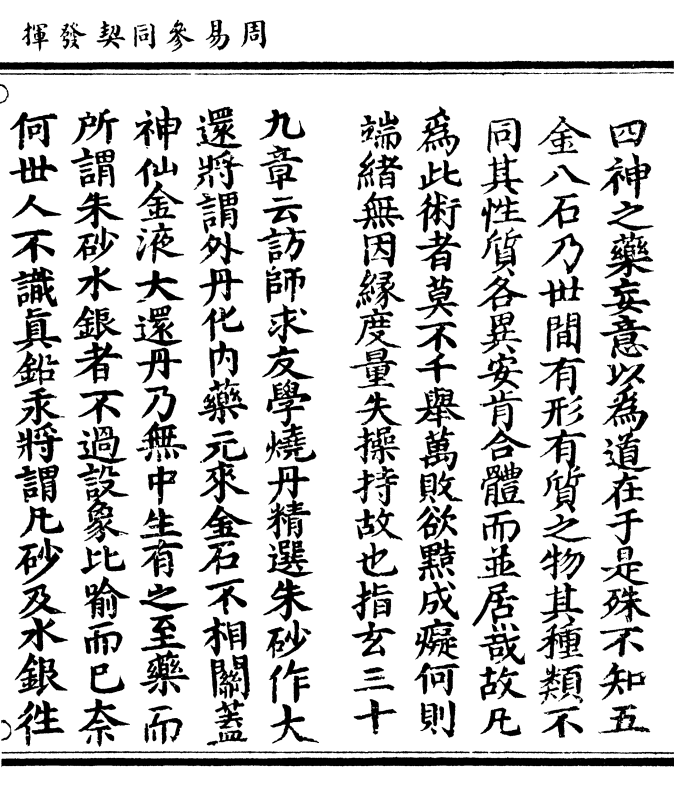 周易參同契發揮
四神之藥妄意以爲道在于是殊不知五
金八石乃丗間有形有質之物其種類不
同其性質各異安肯合體而並居哉故凡
爲此術者莫不千舉萬敗欲黠成癡何則
端緒無因緣度量失操持故也指玄三十
九章云訪師求友學燒丹精選朱砂作大
還將謂外丹化内藥元來金石不相關蓋
神仙金液大還丹乃無中生有之至藥而
所謂朱砂水銀者不過設象比喻而已奈
何丗人不識眞鉛汞將謂凡砂及水銀徃